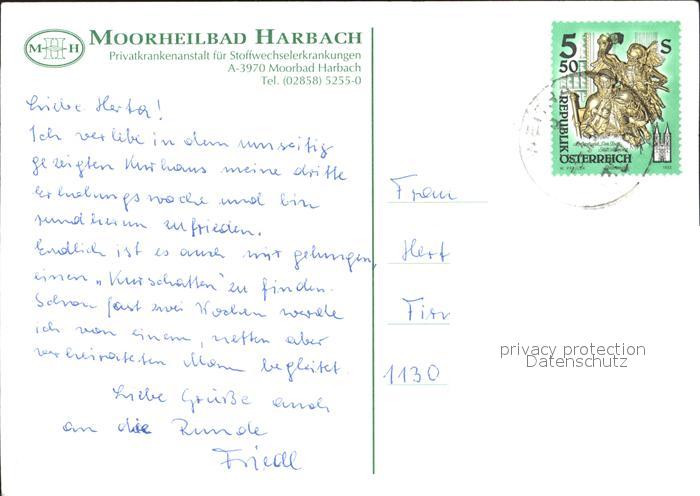 MOORHEILBAD HARBACH
M H H
Privatkrankenanstalt für Stoffwechselerkrankungen
A-3970 Moorbad Harbach
Tel. (02858) 5255-0
Liebe Herta!
Ich verlebe in dem umseitig
gezeigten Kurhaus meine dritte
Erholungswoche und bin
rundherum zufrieden.
Endlich ist es auch mir gelungen,
einen „Kurschatten" zu finden.
Schon fast zwei Wochen werde
ich von einem, netten aber
verheirateten Mann begleitet.
Liebe Grüße auch
an die Runde
Friedl
5 50 S
REPUBLIK
ÖSTERREICH
Frau
Hert
1130
privacy protection
Datenschutz